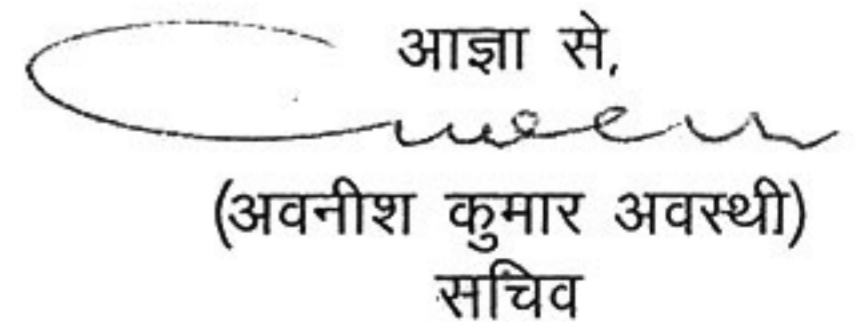 आज्ञा से,
(अवनीश कुमार अवस्थी)
सचिव